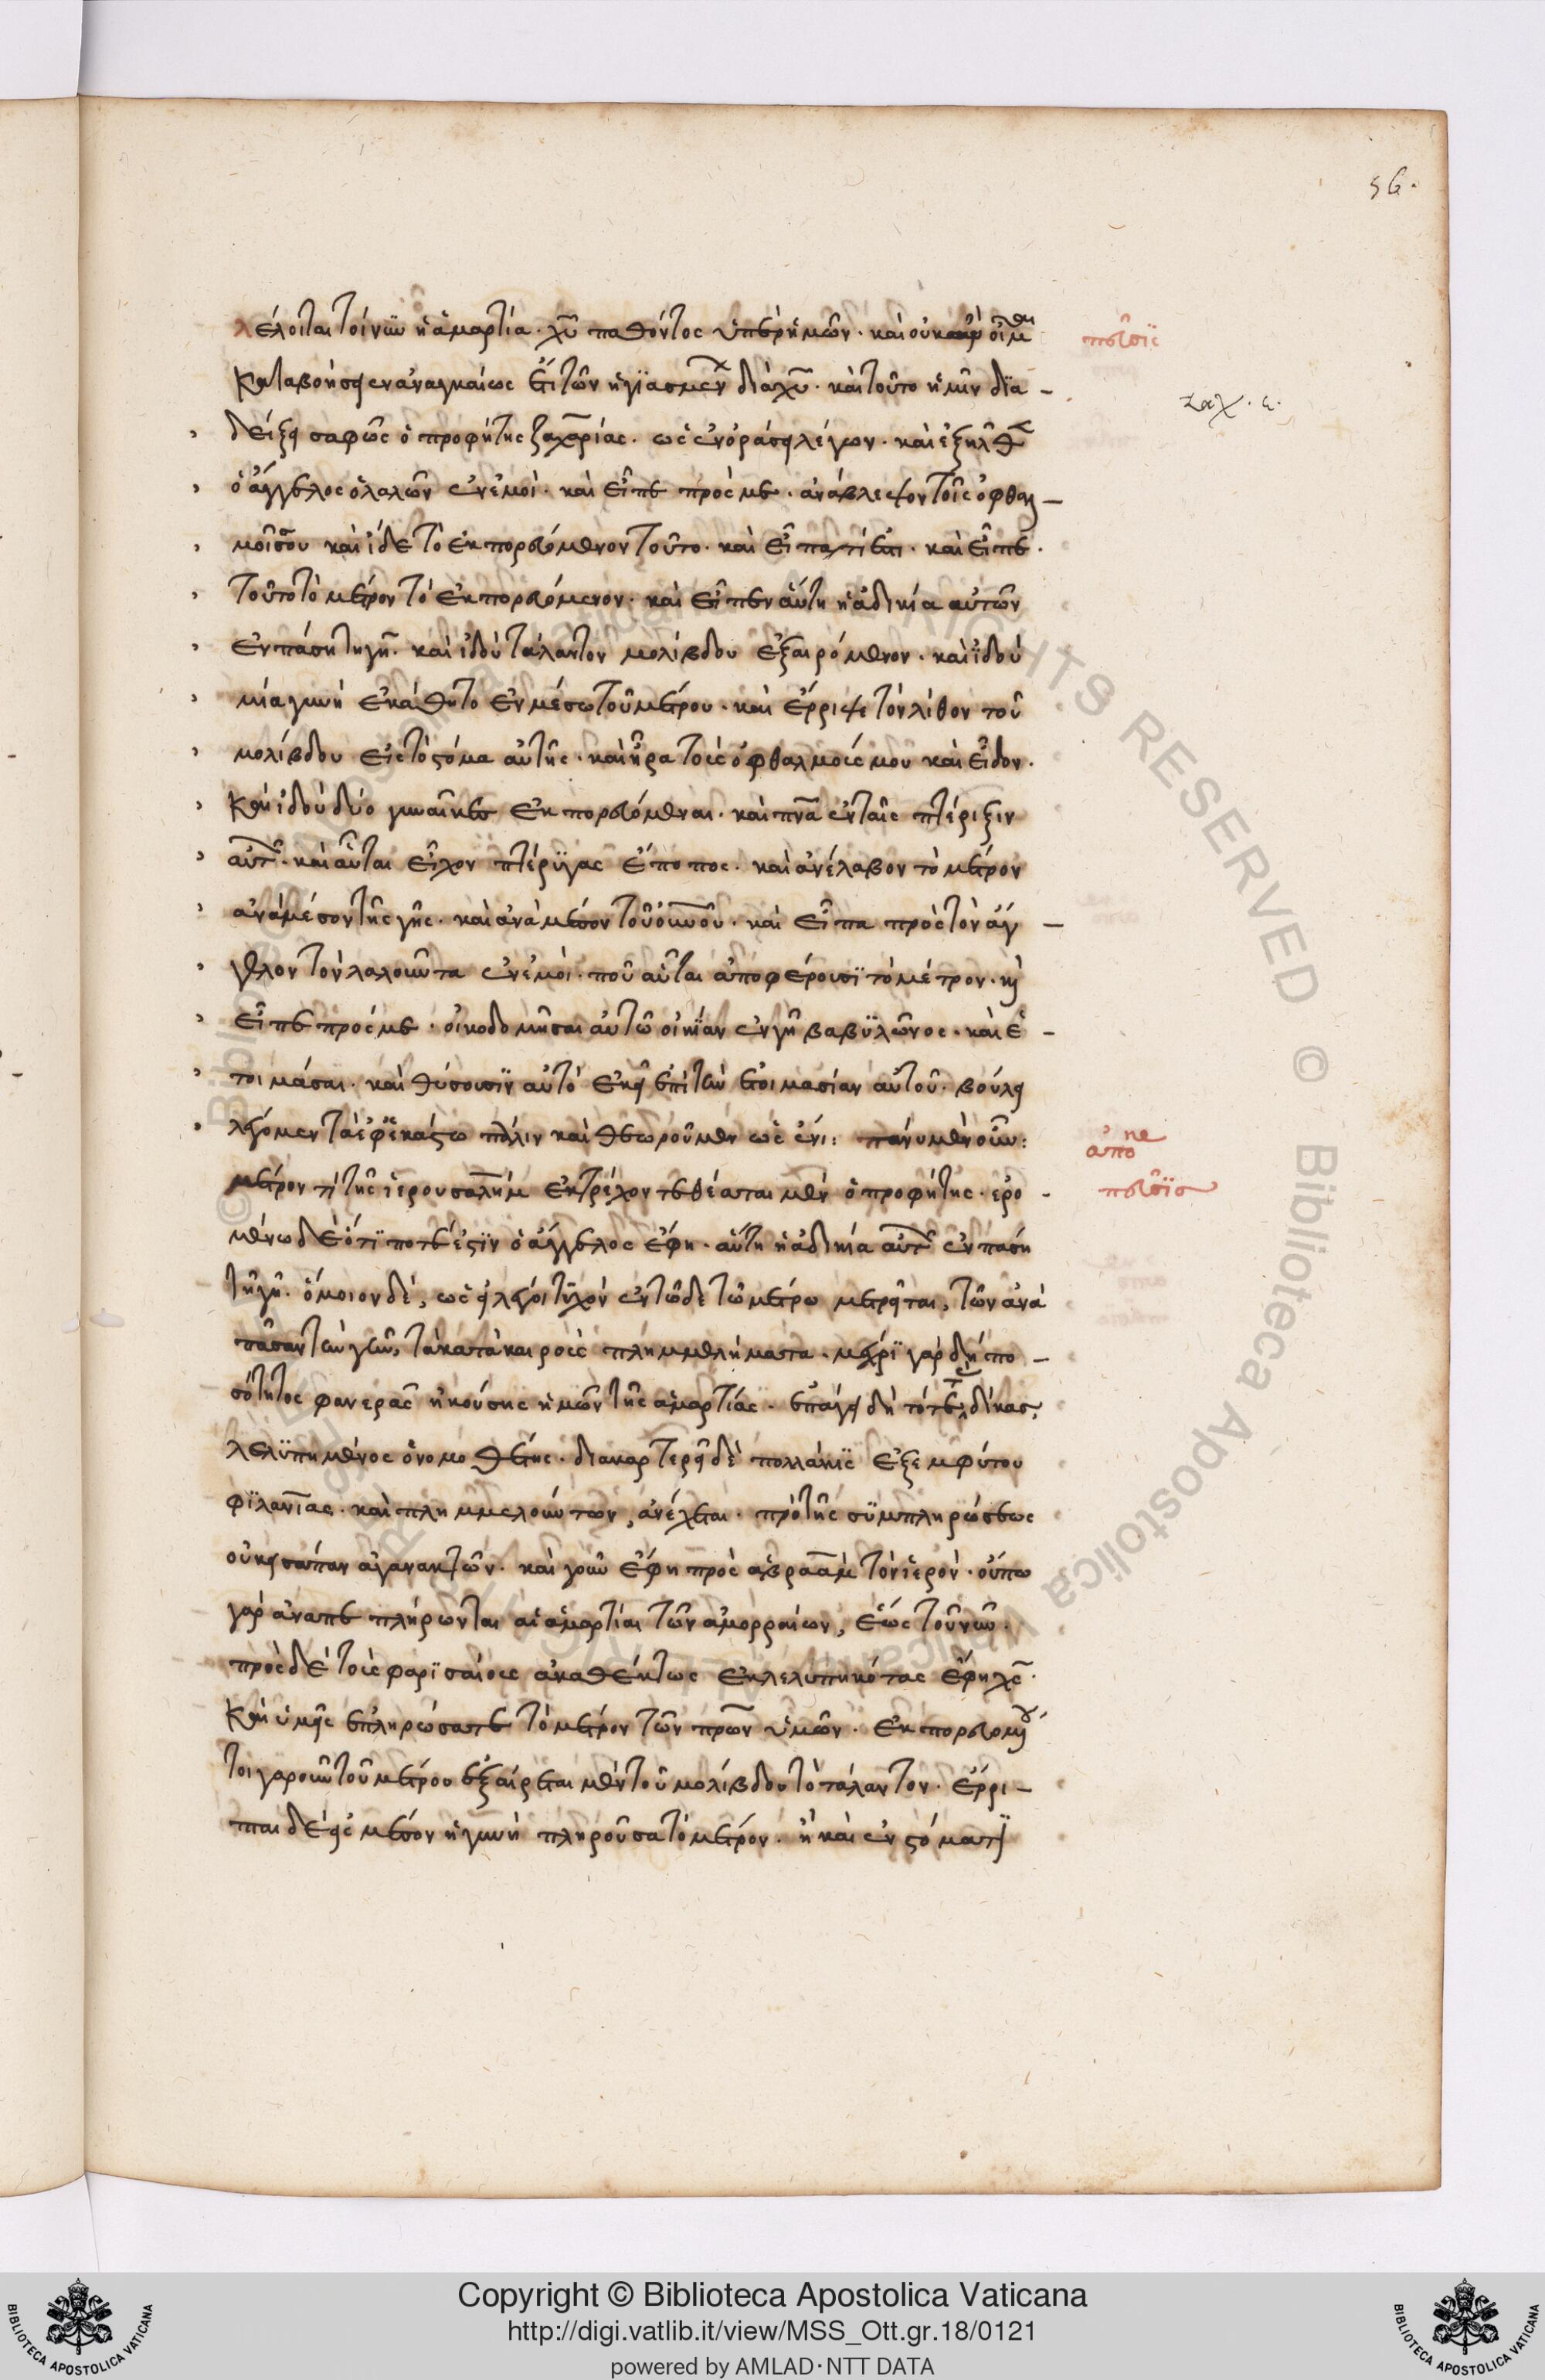 56.
λέλοιται τοίνυν ἡ ἁμαρτία. χῦ παθόντος ὑπὲρ ἡμῶν. καὶ οὐκ οἶμαι
καταβοήσει ἀναγκαίως ἔτι τῶν ἡγιασμένων διὰ χῦ. καὶ τοῦτο ἡμῖν δια-
δείξει σαφῶς ὁ προφήτης ζαχαρίας. ὡς ἐν ὁράσει λέγων. καὶ ἐξῆλθεν
ὁ ἄγγελος ὁ λαλῶν ἐν ἐμοὶ. καὶ εἶπε πρός με. ἀνάβλεψον τοῖς ὀφθαλ-
μοῖς σου καὶ ἴδε τὸ ἐκπορευόμενον τοῦτο. καὶ εἶπα τί ἐστι. καὶ εἶπε.
τοῦτο τὸ μέτρον τὸ ἐκπορευόμενον. καὶ εἶπεν αὕτη ἡ ἀδικία αὐτῶν
ἐν πάσῃ τῇ γῇ. καὶ ἰδοὺ τάλαντον μολίβδου ἐξαιρόμενον. καὶ ἰδοὺ
μία γυνὴ ἐκάθητο ἐν μέσω τοῦ μέτρου. καὶ ἔρριψε τὸν λίθον τοῦ
μολίβδου εἰς τὸ στόμα αὐτῆς. καὶ ἦρα τοὺς ὀφθαλμούς μου καὶ εἶδον.
καὶ ἰδοὺ δύο γυναῖκες ἐκπορευόμεναι. καὶ πνα ἐν ταῖς πτέριξιν
αὐτῶν. καὶ αὗται εἶχον πτέρυγας ἔποπος. καὶ ἀνέλαβον τὸ μέτρον
ἀνὰ μέσον τῆς γῆς. καὶ ἀνὰ μέσον τοῦ οὐνοῦ. καὶ εἶπα πρὸς τὸν ἄγ-
γελον τὸν λαλοῦντα ἐν ἐμοὶ. ποῦ αὗται ἀποφέρουσι τὸ μέτρον. καὶ
εἶπε πρός με. οἰκοδομῆσαι αὐτῶ οἰκίαν ἐν γῇ βαβυλῶνος. καὶ ἑ-
τοιμάσαι. καὶ θύσουσιν αὐτὸ ἐκεῖ ἐπὶ τὴν ἑτοιμασίαν αὐτοῦ. βούλει
λέγομεν τὰ ἐφ' ἑκάστω πάλιν καὶ θεωροῦμεν ὡς ἔνι: πάνυ μὲν οὖν:
μέτρον τί τῆς ἱερουσαλὴμ ἐκτρέχον τεθέαται μὲν ὁ προφήτης. ἐρο-
μένω δὲ ὅτί ποτέ ἐστιν ὁ ἄγγελος ἔφη. αὕτη ἡ ἀδικία αὐτῶν ἐν πάσῃ
τῇ γῇ. ὅμοιον δέ, ὡς εἰ λέγοι τυχόν ἐν τῶδε τῶ μέτρω μετρεῖται, τῶν ἀνὰ
πᾶσαν τὴν γῆν, τὰ κατὰ καιροὺς πλημμελήματα. μέχρι γὰρ δή πο-
σότητος φανερᾶς ἡκούσης ἡμῶν τῆς ἁμαρτίας. ἐπάγει δὴ τότε τὰς δίκας,
λελυπημένος ὁ νομοθέτης. διακαρτερεῖ δὲ πολλάκις ἐξ ἐμφύτου
φιλανίας. καὶ πλημμελούντων, ἀνέχεται. πρὸ τῆς συμπληρώσεως
οὐκ εἰσάπαν ἀγανακτῶν. καὶ γοῦν ἔφη πρὸς ἀβραὰμ τὸν ἱερόν. οὔπω
γὰρ ἀναπεπλήρωνται αἱ ἁμαρτίαι τῶν ἀμορραίων, ἕως τοῦ νῦν.
πρὸς δὲ τοὺς φαρισαίους ἀκαθέκτως ἐκλελυπηκότας ἔφη χς.
καὶ ὑμεῖς ἐπληρώσατε τὸ μέτρον τῶν πρων ὑμῶν. ἐκπορευομένου
τοιγαροῦν τοῦ μέτρου ἐξαίρεται μὲν τοῦ μολίβδου τὸ τάλαντον. ἔρρι-
πται δὲ εἰς μέσον ἡ γυνὴ πληροῦσα τὸ μέτρον. ἣ καὶ ἐν στόματι
ζαχ. ε.
Copyright © Biblioteca Apostolica Vaticana
http://digi.vatlib.it/view/MSS_Ott.gr.18/0121
powered by AMLAD·NTT DATA
BIBLIOTECA APOSTOLICA VATICANA
BIBLIOTECA APOSTOLICA VATICANA